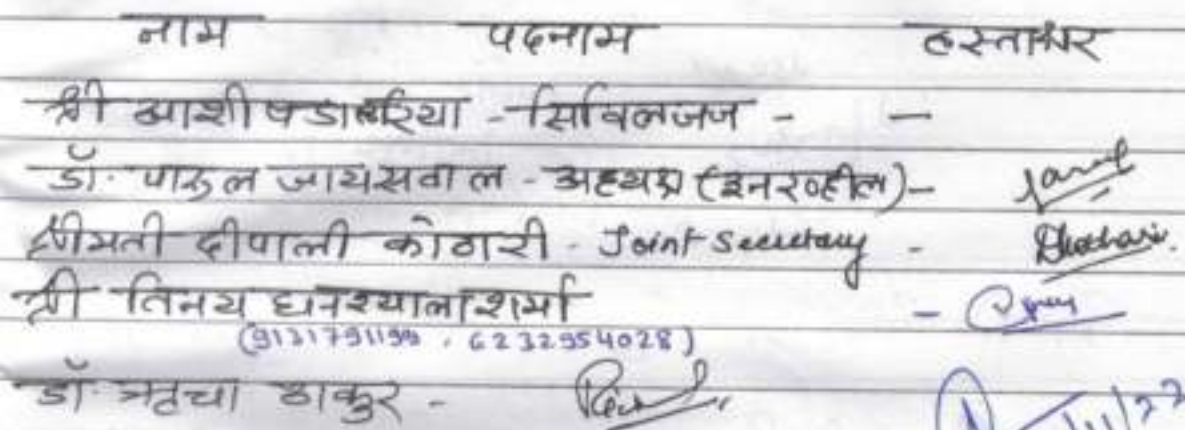 नाम पदनाम हस्ताक्षर
श्री आशीष डाबरिया - सिविलजज - -
डॉ. पारुल जायसवाल - अध्यक्ष (इनरव्हील) -
श्रीमती दीपाली कोठारी - Joint Secretary - Dkothari
श्री विनय घनश्याला शर्मा -
(9131791199, 6232954028)
डॉ. ऋचा ठाकुर -